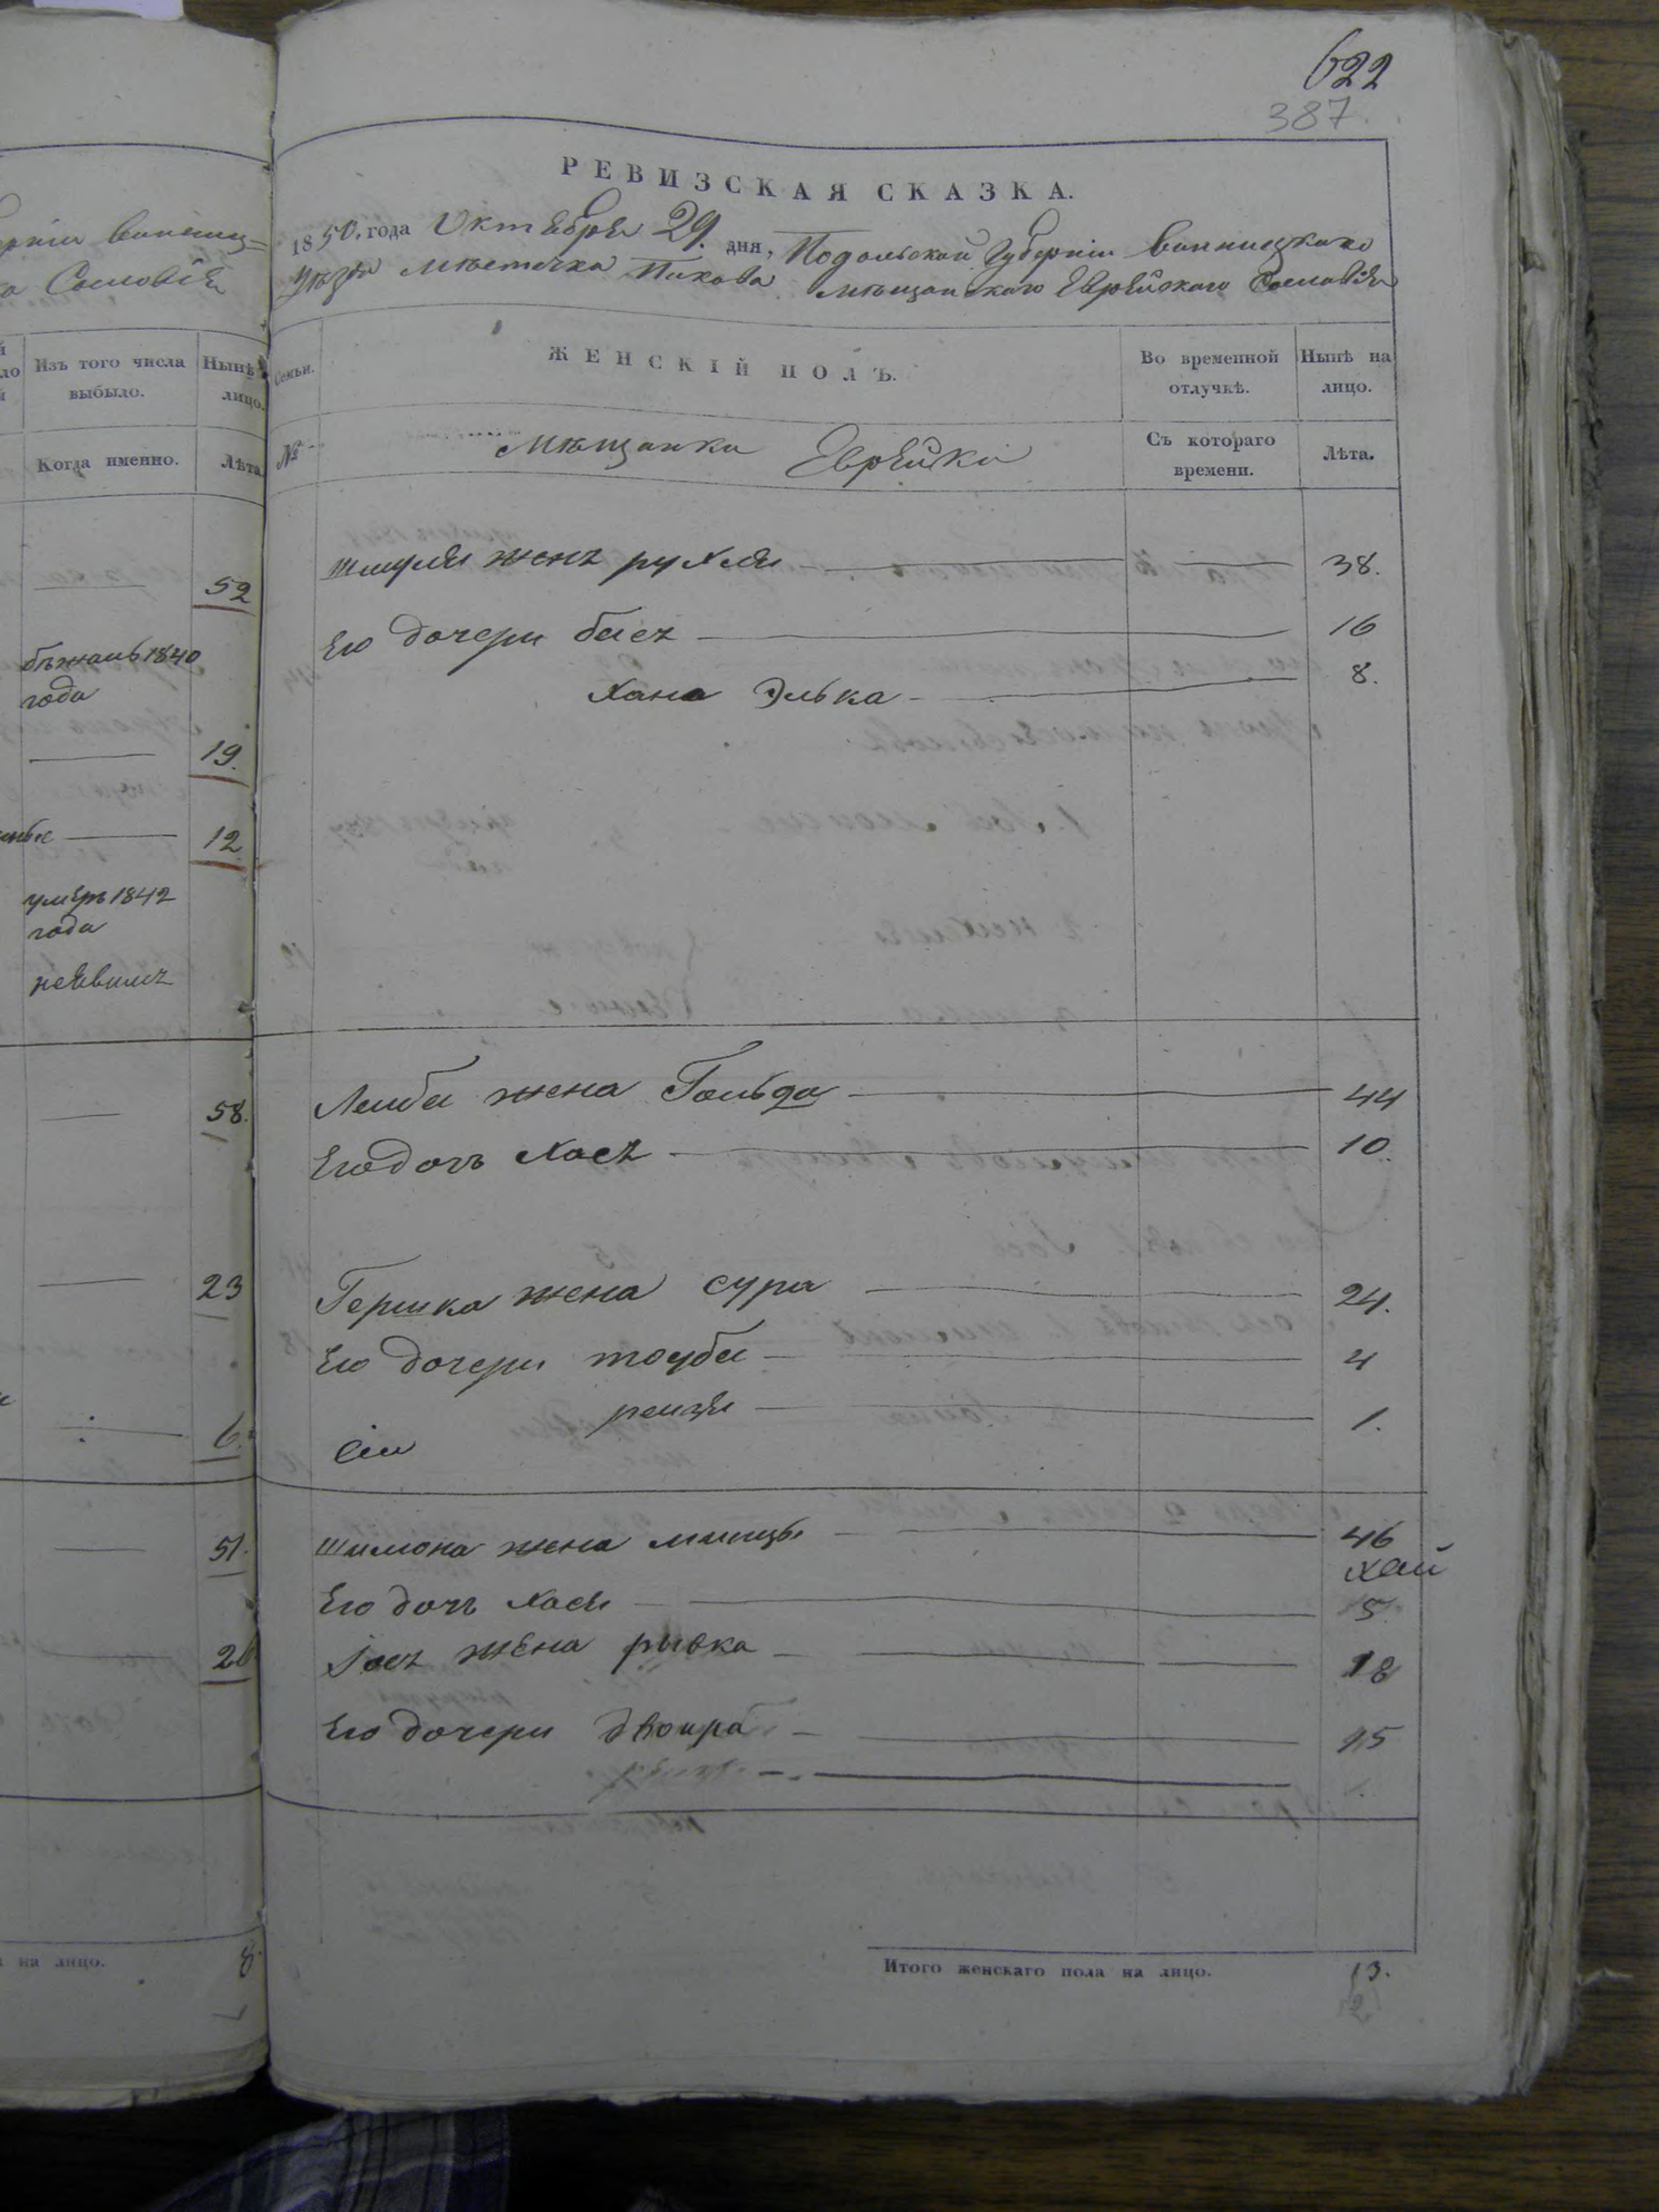 622
387.
РЕВИЗСКАЯ СКАЗКА.
1850. года Октября 29. дня, Подольской Губерніи Винницкаго
Уѣзда мѣстечка Пикова мѣщанскаго Еврейскаго Сословія
Семьи.
ЖЕНСКІЙ ПОЛЪ.
Во временной отлучкѣ.
Нынѣ на лицо.
№
мѣщанки Еврейки
Съ котораго времени.
Лѣта.
шмуля жена рухля 38.
Его дочери бася 16
Хана Элька 8.
Лейбы жена Гольда 44
Его дочь Хася 10.
Гершка жена сура 24.
Его дочери тоуба 4
рейзя 1.
шимона жена 46
Его дочь Хася 5
жена рывка 18
Его дочери двойра
Итого женскаго пола на лицо. 13.
Изъ того числа выбыло.
Нынѣ
лицо.
Когда именно.
Лѣта
52
1840
года
19.
12
умеръ 1842
года
58.
23
6.
51.
на лицо. 8